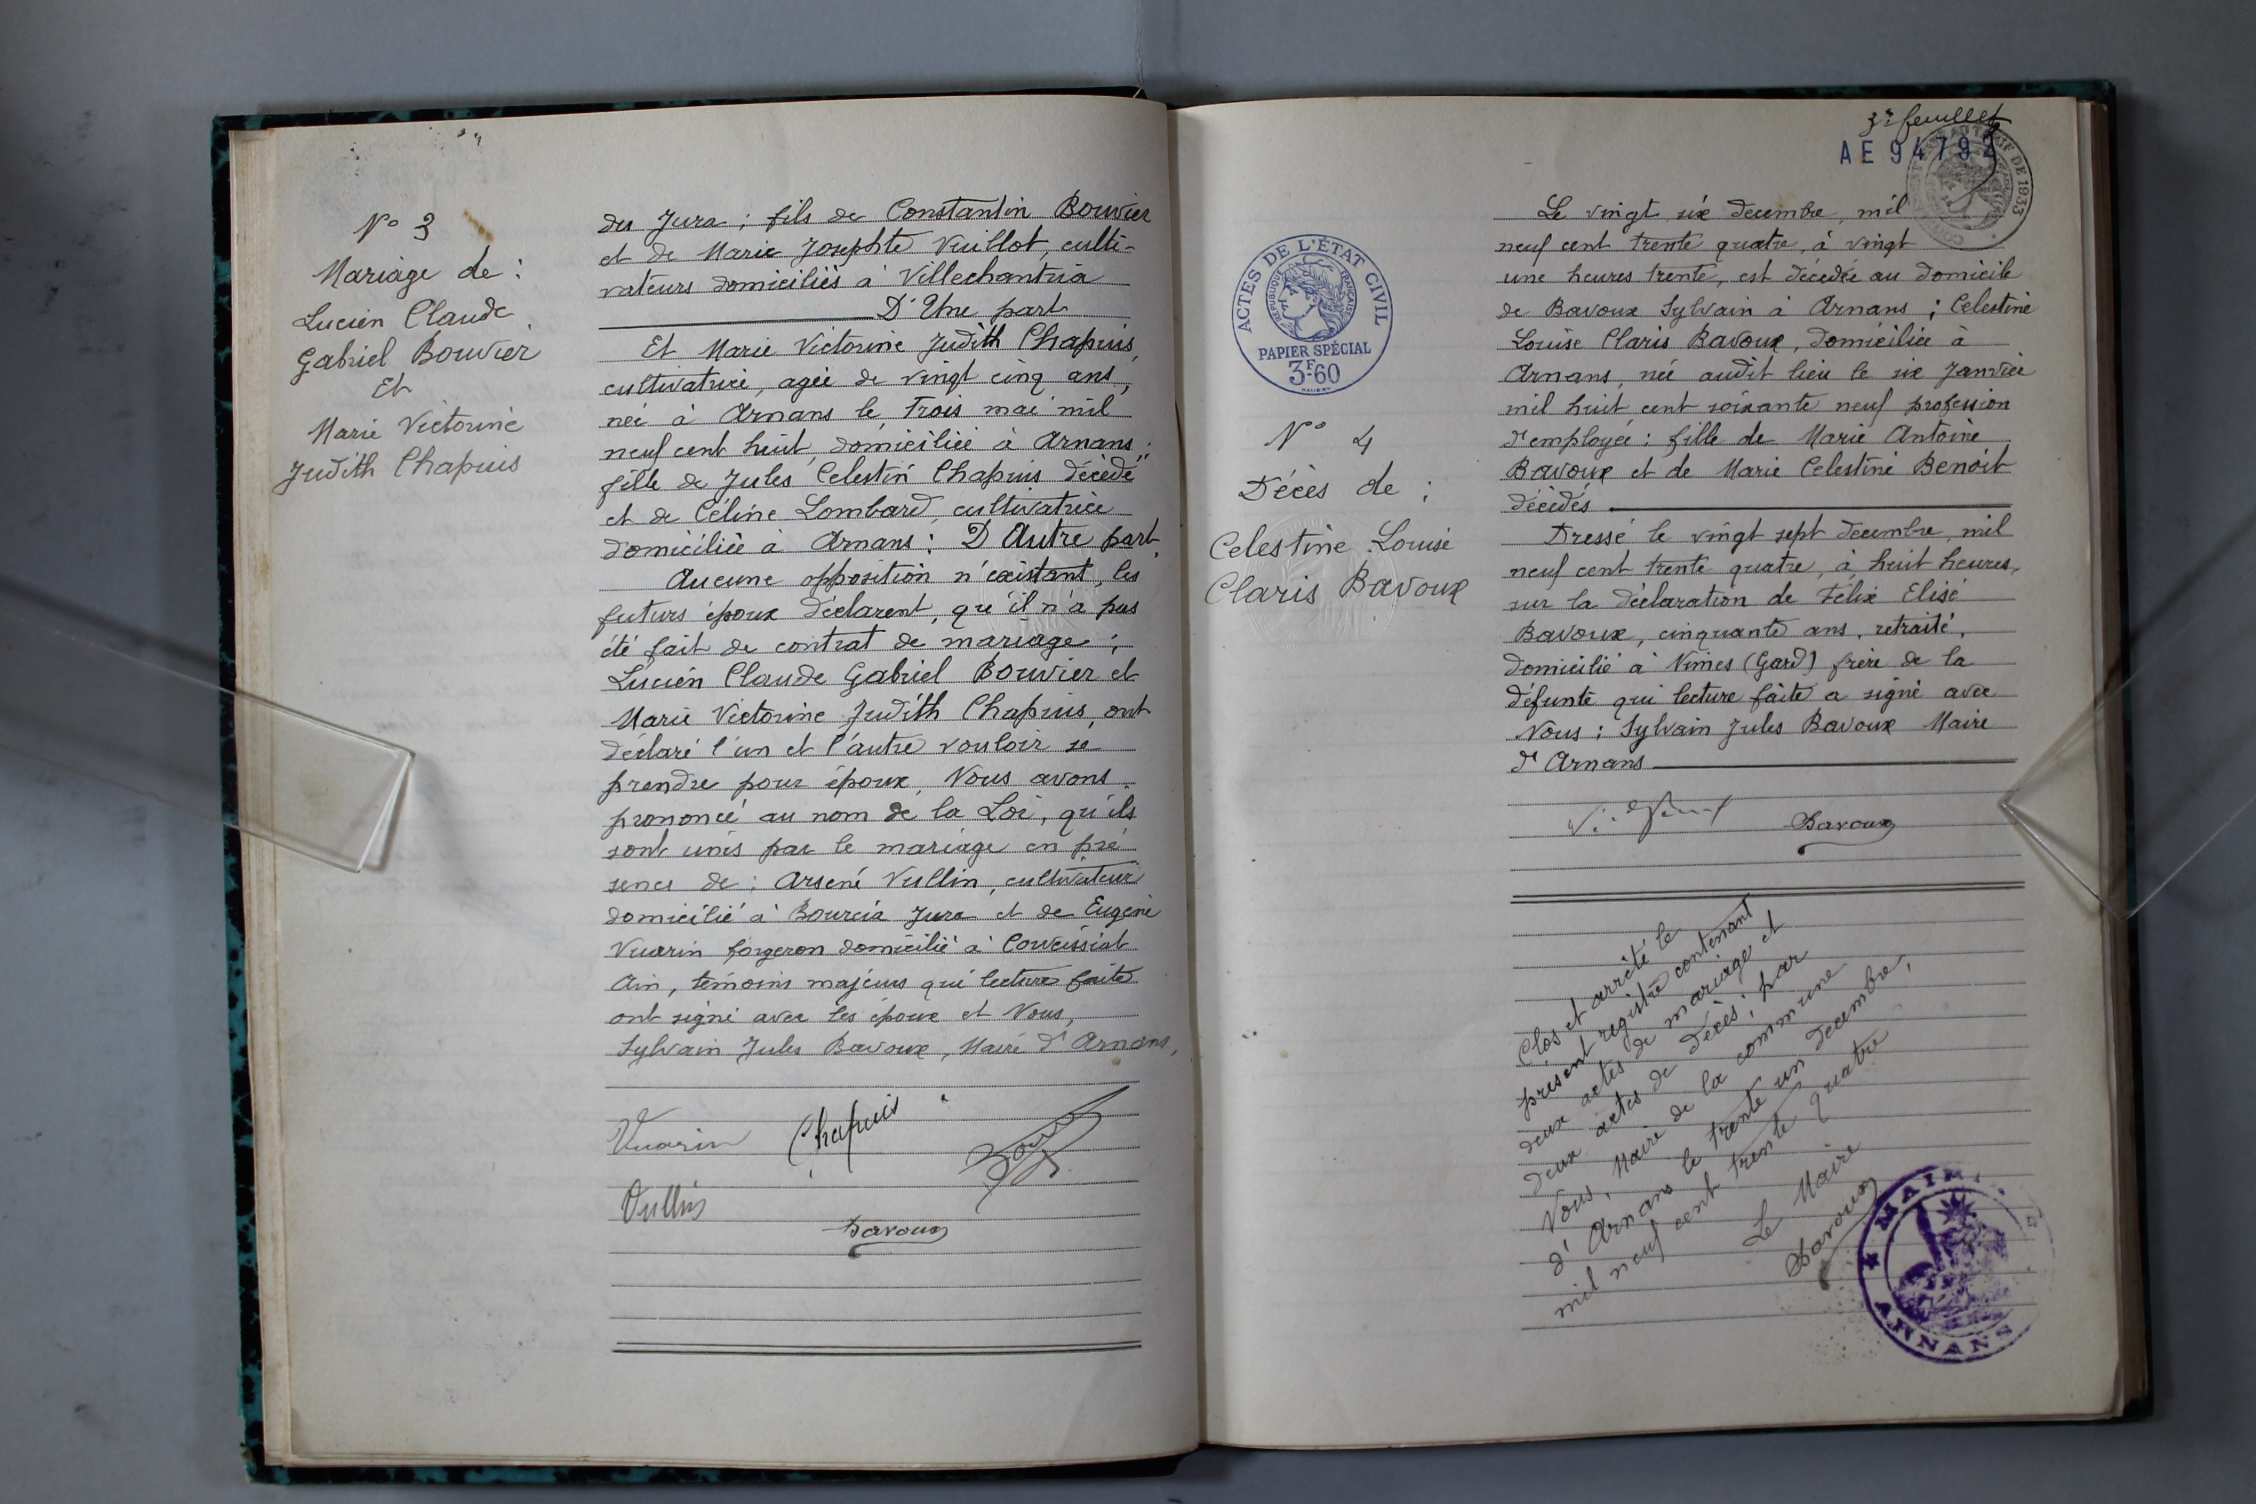 N° 3
Mariage de :
Lucien Claude
Gabriel Bouvier
Et
Marie Victorine
Judith Chapuis
du Jura ; fils de Constantin Bouvier
et de Marie Josephte Vuillot, culti-
vateurs domiciliés à Villechantria
D'Une part
Et Marie Victorine Judith Chapuis,
cultivatrice, agée de vingt cinq ans,
née à Arnans le trois mai mil
neuf cent huit, domiciliée à Arnans ;
fille de Jules Celestin Chapuis décédé
et de Céline Lombard, cultivatrice
domiciliée à Arnans : D'Autre part
Aucune opposition n'existant, les
futurs époux déclarent, qu'il n'a pas
été fait de contrat de mariage ;
Lucien Claude Gabriel Bouvier et
Marie Victorine Judith Chapuis, ont
déclaré l'un et l'autre vouloir se
prendre pour époux, Nous avons
prononcé au nom de la Loi, qu'ils
sont unis par le mariage en pré
sence de : Arsené Vullin, cultivateur
domicilié à Bourcia Jura et de Eugène
Vuarin forgeron domicilié à Courissiat
Ain, témoins majeurs qui lecture faite
ont signé avec les époux et Nous,
Sylvain Jules Bavoux, Maire d'Arnans,
Vuarin Chapuis
Vullin
Bavoux
3e feuillet
AE 94792
DE 1933
Le vingt six decembre, mil
neuf cent trente quatre, à vingt
une heures trente, est décédée au domicile
de Bavoux Sylvain à Arnans ; Celestine
Louise Claris Bavoux, domiciliée à
Arnans, née audit lieu le six Janvier
mil huit cent soixante neuf profession
d'employée : fille de Marie Antoine
Bavoux et de Marie Celestine Benoit
décédés
Dressé le vingt sept decembre, mil
neuf cent trente quatre, à huit heures,
sur la déclaration de Félix Elisé
Bavoux, cinquante ans, retraité,
domicilié à Nimes (Gard) frère de la
défunte qui lecture faite a signé avec
Nous : Sylvain Jules Bavoux Maire
d'Arnans
Bavoux
ACTES DE L'ÉTAT CIVIL
RÉPUBLIQUE FRANÇAISE
PAPIER SPÉCIAL
3F60
N° 4
Décès de :
Celestine Louise
Claris Bavoux
Clos et arrêté le
présent registre contenant
deux actes de mariage et
deux actes de décès ; par
Nous, Maire de la commune
d'Arnans le trente un decembre,
mil neuf cent trente quatre
Le Maire
Bavoux
MAIRIE
ARNANS